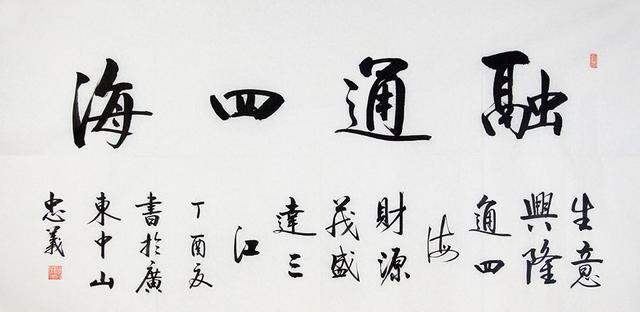 融通四海
生意
興隆
通四
海
財源
茂盛
達三
江
丁酉夏
書於廣
東中山
忠義